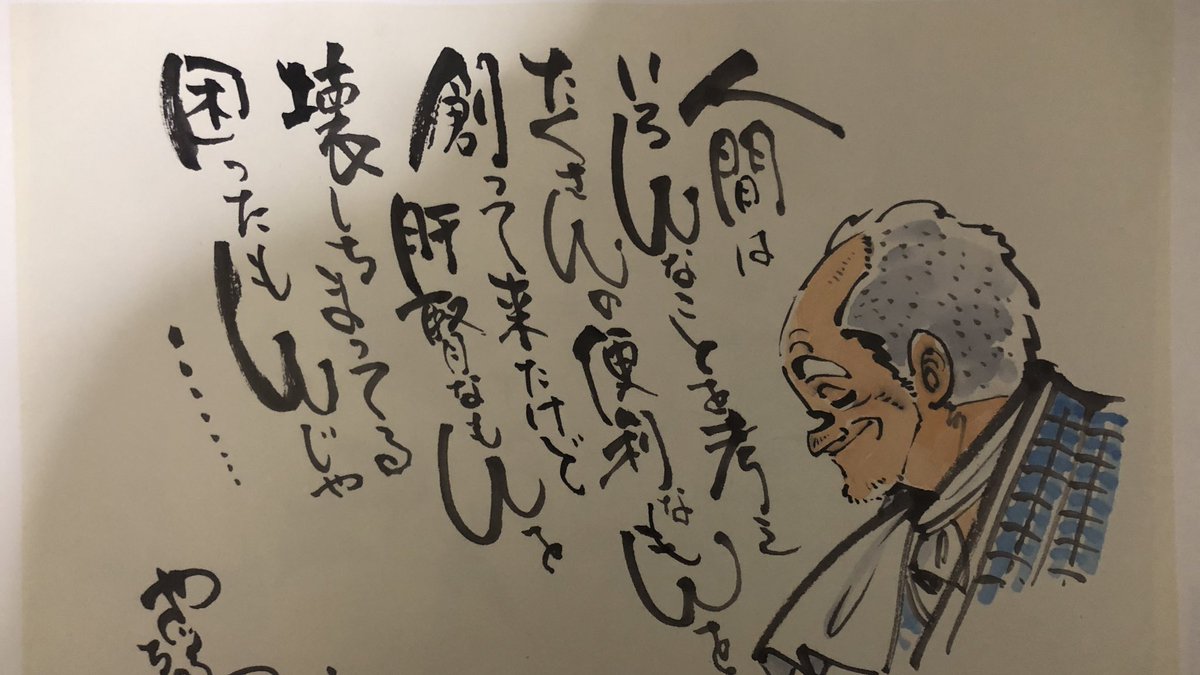 人間は
いろんなことを考え
たくさんの便利なもんを
創って来たけど
肝腎なもんを
壊しちまってる
困ったもんじゃ
・・・・・・・